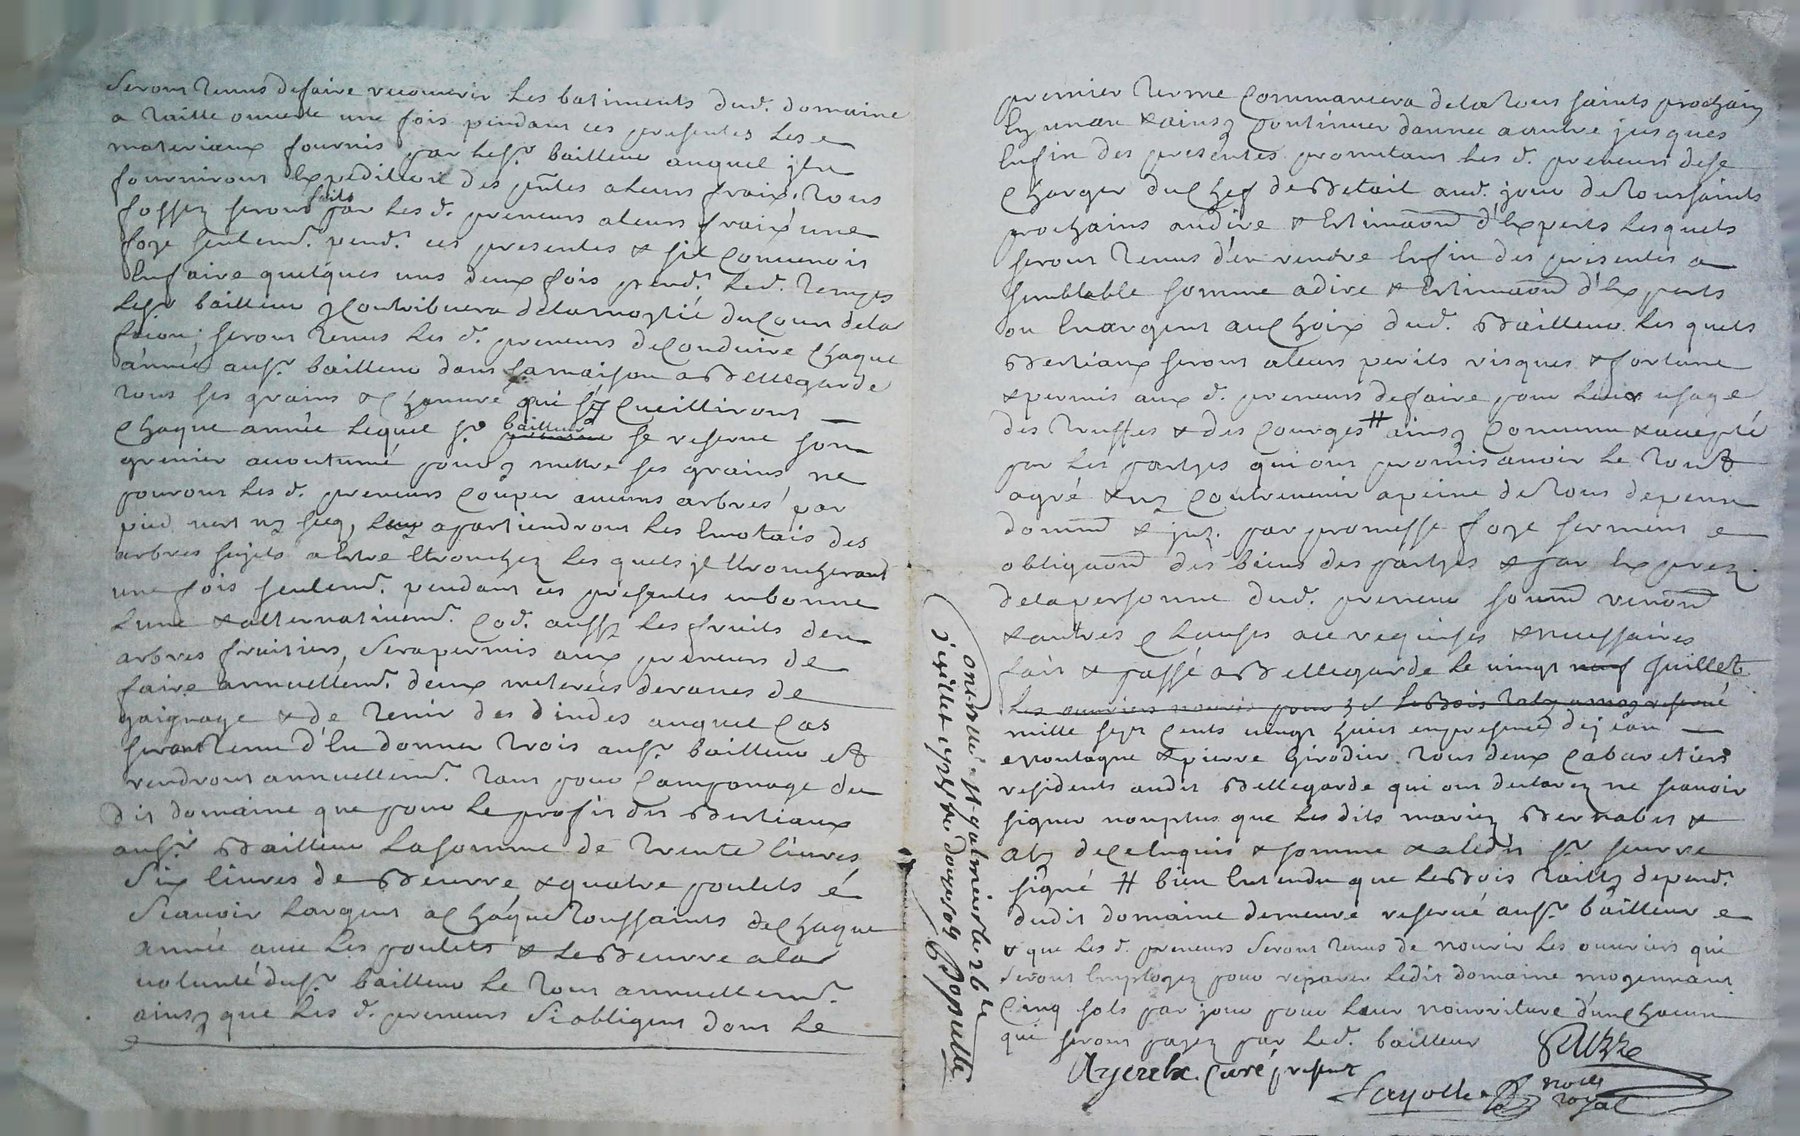 seront tenus de faire recouvrir les batiments dud. domaine
a taille ouverte une fois pendant ces presentes les
materiaux fournis par le sr. bailleur auquel ils
fourniront expedition des pntes a leurs fraix, tous
fossez seront faits par les d. preneurs a leurs fraix une
foye seulemt. pendt. ces presentes & sil convenoit
en faire quelques uns deux fois pendt. led. temps
le sr bailleur y contribuera de la moytié du cout de la
faion; seront tenus les d. preneurs de conduire chaque
année aud. sr. bailleur dans sa maison a Bellegarde
tous ses grains & chanvre qui sy cueilliront
chaque année lequel sr bailleur se reserve son
grenier accoutumé pour y mettre ses grains ne
pouront les d. preneurs couper aucuns arbres par
pied vert ny secq, leur apartiendront les emotais des
arbres sujets a estre etronchez lesquels jl etroncheront
une fois seulemt. pendant ces presentes en bonne
lune & alternativemt. cod. aussy les fruits des
arbres fruitiers, sera permis aux preneurs de
faire annuellemt. deux meterées de raves de
gaignage & de tenir des dindes auquel cas
seront tenu d'en donner trois aud. sr. bailleur et
rendront annuellemt. tant pour lamponage du
dit domaine que pour le profit des Bestiaux
aud. sr. Bailleur la somme de trente livres
six livres de Beurre & quatre poulets
scavoir l'argent a chaque toussaints de chaque
année avec les poulets & le Beurre a la
volunté dud. sr. bailleur le tout annuellemt.
ainsy que les d. preneurs s'i obligent dont le
premier terme commancera de la tous saints prochain
en un an & ainsy continuer dannée a autre jusques
en fin des presentes promettant les d. preneurs de se
charger du chef de Betail aud. jour de toussaints
prochains au dire & estimaon d'experts lesquels
seront tenus d'en rendre en fin des presentes a
semblable somme a dire & estimaon d'experts
ou en argent au choix dud. Bailleur lesquels
Bestiaux seront a leurs perils risques & fortune
& permis aux d. preneurs de faire pour leur usage
des truffes & des courges # ainsy convenu & accepté
par les partyes qui ont promis avoir le tout
agré & ny contrevenir a peine de tous depens
domm & jnt. par promesse foye serment
obligaon des biens des partyes & par exprez
de la personne dud. preneur soumn renon
& autres clauses a ce requises & necessaires
fait & passé a Bellegarde le vingt neuf juillet
mille sept cents vingt huit en presence de jean
montagne & pierre Girodier tous deux cabaretiers
residents audit Bellegarde qui ont declarez ne scavoir
signer non plus que les dits mariez Bernabet &
a ly de ce enquis & somme & a led. sr seurre
signé # bien entendu que le Bois taillz depend.
dudit domaine demeure reservé aud. sr. bailleur
& que les d. preneurs seront tenus de nourir les ouvriers qui
seront employez pour reparer ledit domaine moyennant
cinq sols par jour pour leur nourriture d'un chacun
qui seront payez par led. bailleur
curé present
Fayolle
notre
royal
juillet 1728